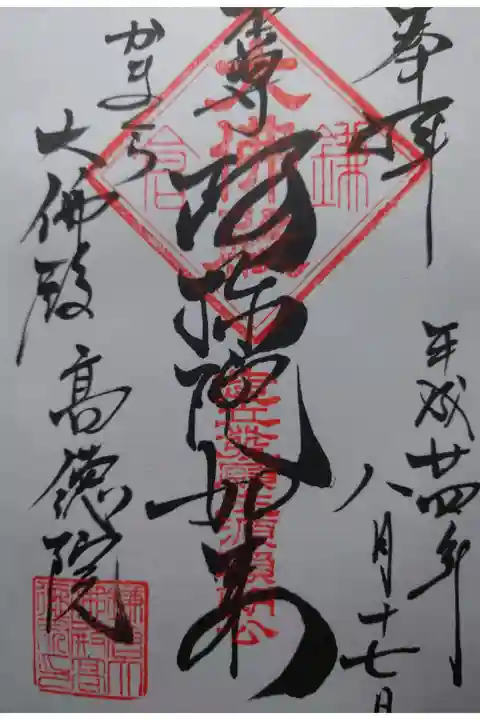 奉拝
平成廿四年
八月十七日
本尊
阿弥陀如来
かまくら
大佛殿
高徳院
鎌倉
大佛殿